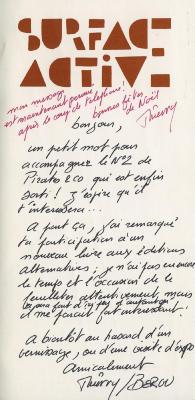 SURFACE
ACTIVE
mon message
est maintenant périmé
après le coup de téléphone!
bonnes fêtes
de Noël
Thierry
Bonjour,
un petit mot pour
accompagner le N°2 de
Pirates & co qui est enfin
sorti! J'espère qu'il
t'intéressera...
A part ça, j'ai remarqué
ta participation à un
nouveau livre aux éditions
alternatives; je n'ai pas eu encore
le temps et l'occasion de le
feuilleter attentivement, mais
me paraît fort intéressant!
A bientôt au hasard d'un
vernissage, ou d'une visite d'expo
Amicalement
Thierry / BEROU